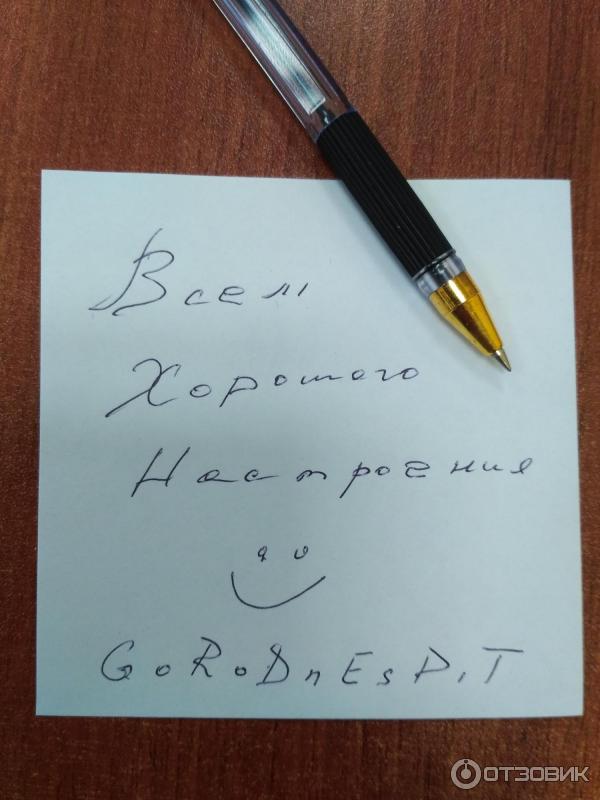 Всем
Хорошего
Настроения
GoRoDnEsP.T
ОТЗОВИК